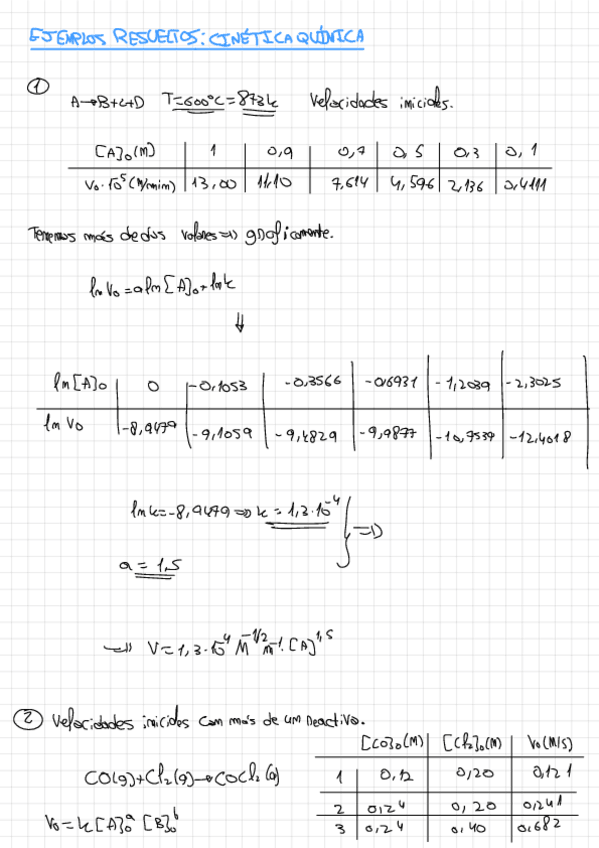 EJEMPLOS RESUELTOS: CINÉTICA QUÍNICA
1 A→B+C+D T=600°C=873k Velocidades iniciales.
[A]₀(M) | 1 | 0,9 | 0,7 | 0,5 | 0,3 | 0,1
V₀·10⁵(M/min) | 13,00 | 11,10 | 7,614 | 4,596 | 2,136 | 0,4111
Tenemos más de dos valores => gráficamente.
ln V₀ = a ln[A]₀ + ln k
⇓
ln[A]₀ | 0 | -0,1053 | -0,3566 | -0,6931 | -1,2039 | -2,3025
ln V₀ | -8,9479 | -9,1059 | -9,4829 | -9,9877 | -10,7539 | -12,4018
ln k = -8,9479 => k = 1,3·10⁻⁴ } =>
a = 1,5
=> V = 1,3·10⁻⁴ M⁻¹/² m⁻¹·[A]¹,⁵
2 Velocidades iniciales con más de un reactivo.
[CO]₀(M) | [Cl₂]₀(M) | V₀(M/s)
CO(g)+Cl₂(g)→COCl₂(g)
1 | 0,12 | 0,20 | 0,121
2 | 0,24 | 0,20 | 0,241
V₀ = k[A]₀ᵃ [B]₀ᵇ
3 | 0,24 | 0,40 | 0,682